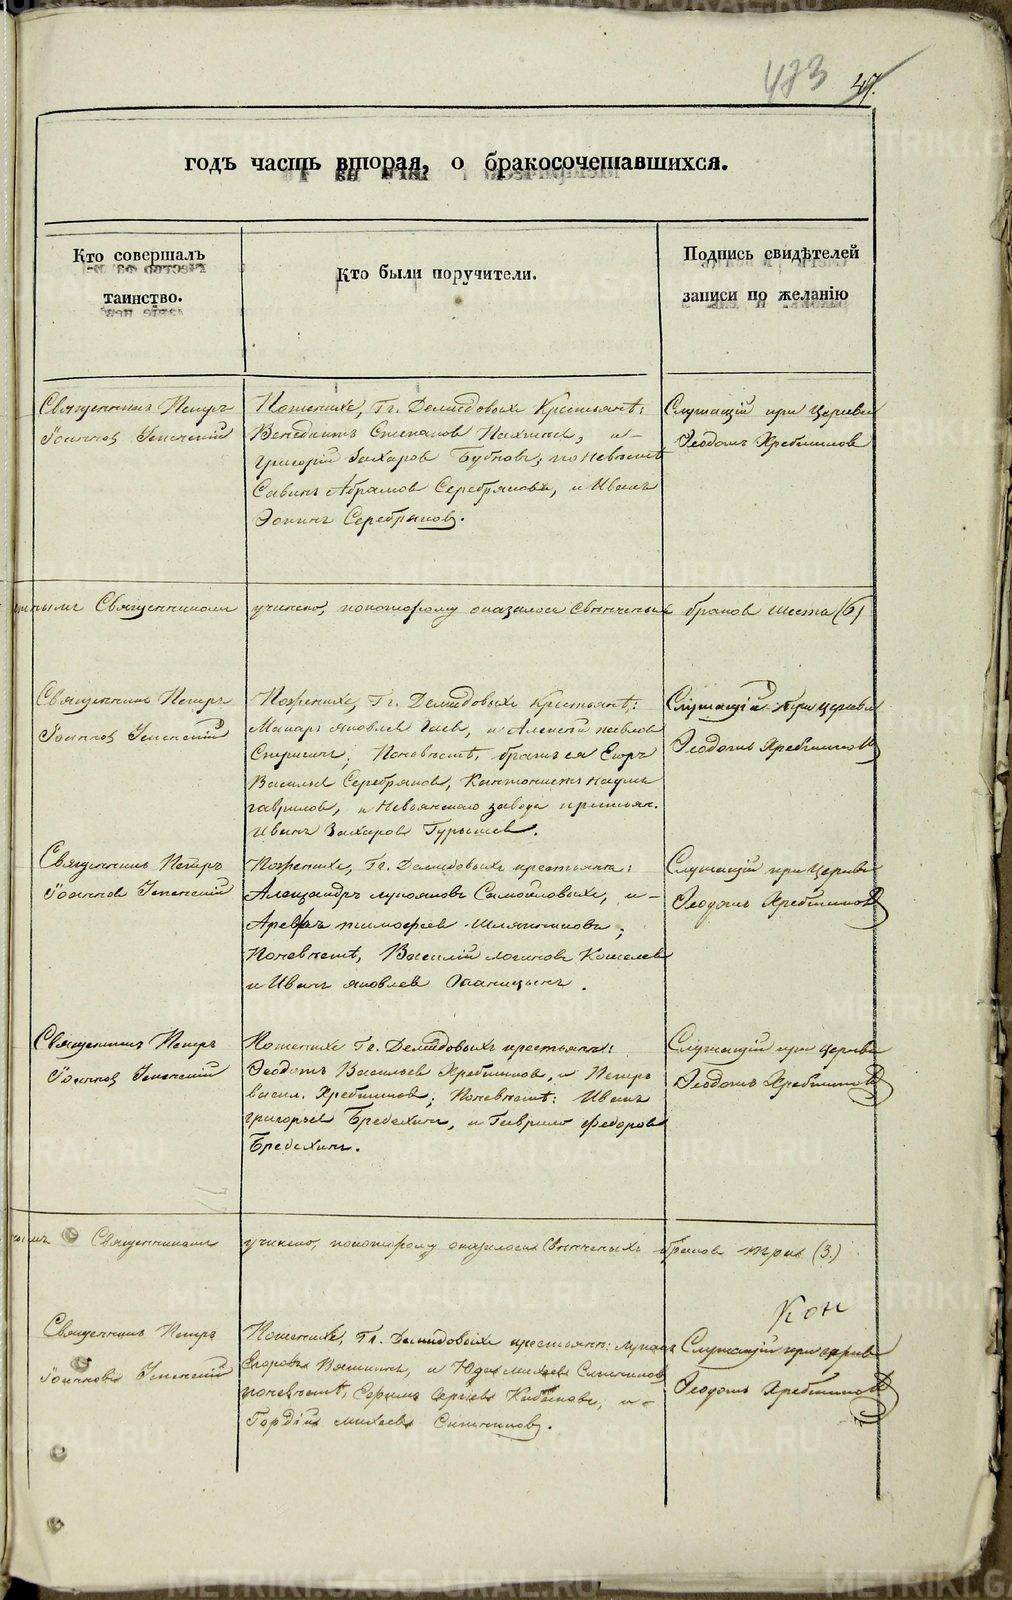 473 47.
годъ часть вторая, о бракосочетавшихся.
Кто совершалъ
таинство.
Кто были поручители.
Подпись свидѣтелей
записи по желанію
Священникъ Петръ
Іоанновъ Успенскій
По женихе, Гг. Демидовыхъ Крестьянѣ:
Венедиктъ Степановъ и
Григорій Захаровъ Бубновъ; по невѣстѣ
Савинъ Абрамов Серебряковъ, и Иванъ
Фоминъ Серебряковъ.
Служащій при Церкви
Феодотъ Хребтиков
Священниками учинено, по которому оказалося Свѣнченыхъ браков шесть (6)
Священникъ Петръ
Іоаннов Успенскій
По женихе, Гг. Демидовыхъ Крестьянѣ:
Макаръ Яковлев и Алексей Павлов
По невѣстѣ, братъ ея Егоръ
Васильев Серебряков, Кантонистъ Наумъ
Гаврилов, и Невьянского завода крестьян.
Иванъ Захаров
Служащій при церкви
Феодотъ Хребтиков
Священникъ Петръ
Іоаннов Успенскій
По женихе, Гг. Демидовыхъ крестьянѣ:
Александръ Самойловыхъ, и
Арефъ Тимофеев
По невѣстѣ, Василій Логинов Кошелев
и Иванъ Яковлев
Служащій при Церкви
Феодотъ Хребтиков
Священникъ Петръ
Іоаннов Успенскій
По женихе Гг. Демидовыхъ крестьянѣ:
Феодотъ Васильев Хребтиков, и Петръ
Васил. Хребтиков; По невѣстѣ: Иванъ
Григорьев Бредихинъ, и Гаврило Федоров
Бредихинъ.
Служащій при Церкви
Феодотъ Хребтиков
Священниками учинено, по которому оказалося Свѣнченыхъ браков три (3.)
Кон
Священникъ Петръ
Іоанновъ Успенскій
По женихе, Гг. Демидовыхъ крестьянѣ:
Егоровъ и Юда Михеев Ситников
по невѣстѣ, Сергѣев и
Гордѣй Михеевъ Ситников.
Служащій при церкви
Феодотъ Хребтиков
METRIKI.GASO-URAL.RU